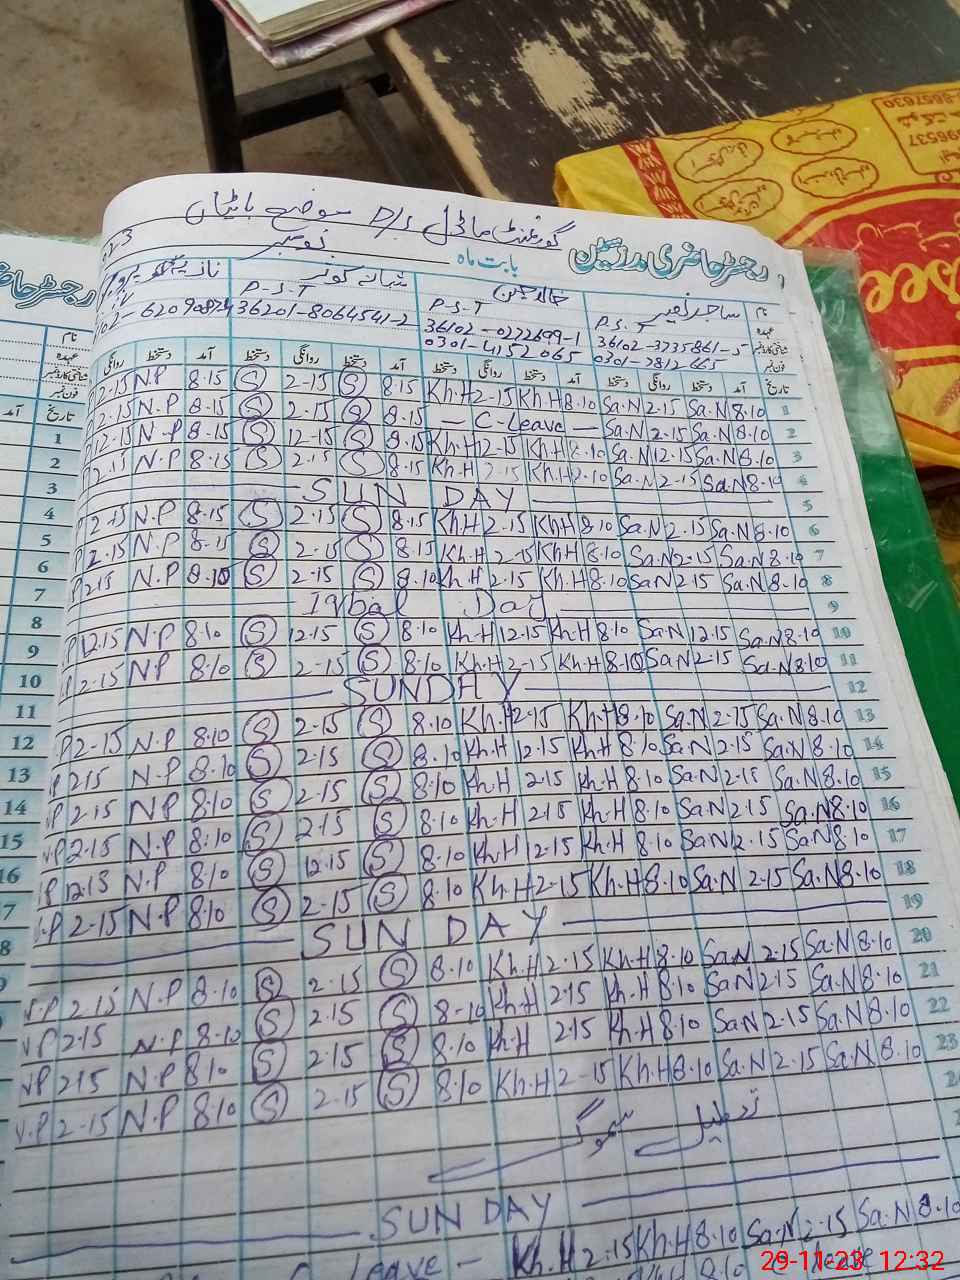 گورنمنٹ ماڈل P/S موضع باٹیاں
رجسٹر حاضری مدرسین بابت ماہ نومبر
نام ساجد نصیر خالد حسین شبانہ کوثر
عہدہ P.S.T P-S-T P-S-T
شناختی کارڈ نمبر 36102-3735861-5 36102-0222699-1 36201-8064541-2
فون نمبر 0301-7812665 0301-4152065
تاریخ آمد دستخط روانگی دستخط آمد دستخط روانگی دستخط آمد دستخط روانگی دستخط آمد دستخط روانگی
2-15 N.P 8.15 S 2-15 S 8.15 Kh.H 2-15 Kh.H 8.10 Sa.N 2.15 Sa.N 8.10 1
2.15 N.P 8.15 S 2.15 S 8.15 — C-Leave — Sa.N 2.15 Sa.N 8.10 2
12.15 N.P 8.15 S 12-15 S 8.15 Kh.H 12-15 Kh.H 8.10 Sa.N 12.15 Sa.N 8.10 3
2.15 N.P 8.15 S 2.15 S 8.15 Kh.H 2.15 Kh.H 8.10 Sa.N 2-15 Sa.N 8.10 4
SUN DAY 5
2.15 N.P 8.15 S 2.15 S 8.15 Kh.H 2.15 Kh.H 8.10 Sa.N 2.15 Sa.N 8.10 6
2.15 N.P 8.15 S 2.15 S 8.15 Kh.H 2-15 Kh.H 8.10 Sa.N 2.15 Sa.N 8.10 7
2.15 N.P 8.10 S 2-15 S 8.10 Kh.H 2.15 Kh.H 8.10 Sa.N 2.15 Sa.N 8.10 8
Iqbal Day 9
12.15 N.P 8.10 S 12.15 S 8.10 Kh.H 12.15 Kh.H 8.10 Sa.N 12.15 Sa.N 8.10 10
2.15 NP 8.10 S 2-15 S 8.10 Kh.H 2-15 Kh.H 8.10 Sa.N 2.15 Sa.N 8.10 11
SUNDAY 12
2-15 N.P 8.10 S 2-15 S 8.10 Kh.H 2-15 Kh.H 8.10 Sa.N 2-15 Sa.N 8.10 13
2.15 N.P 8.10 S 2.15 S 8.10 Kh.H 12.15 Kh.H 8.10 Sa.N 2.15 Sa.N 8.10 14
2.15 NP 8.10 S 2.15 S 8.10 Kh.H 2.15 Kh.H 8.10 Sa.N 2.15 Sa.N 8.10 15
N.P 2.15 N.P 8:10 S 2.15 S 8.10 Kh.H 2.15 Kh.H 8.10 Sa.N 2.15 Sa.N 8.10 16
12.15 N.P 8.10 S 12.15 S 8.10 Kh.H 12.15 Kh.H 8.10 Sa.N 2.15 Sa.N 8.10 17
2-15 N.P 8.10 S 2-15 S 8.10 Kh.H 2-15 Kh.H 8.10 Sa.N 2.15 Sa.N 8.10 18
SUN DAY 19
2.15 N.P 8.10 S 2.15 S 8.10 Kh.H 2.15 Kh.H 8.10 Sa.N 2.15 Sa.N 8.10 20
2.15 N.P 8.10 S 2.15 S 8-10 Kh.H 2.15 Kh.H 8.10 Sa.N 2.15 Sa.N 8.10 21
2.15 N.P 8.10 S 2.15 S 8.10 Kh.H 2.15 Kh.H 8.10 Sa.N 2.15 Sa.N 8.10 22
N.P 2-15 N.P 8.10 S 2.15 S 8.10 Kh.H 2-15 Kh.H 8.10 Sa.N 2.15 Sa.N 8.10 23
تعطیل سموگ
SUN DAY
Leave – Kh.H 2.15 Kh.H 8.10 Sa.N 2.15 Sa.N 8.10
29-11-23 12:32